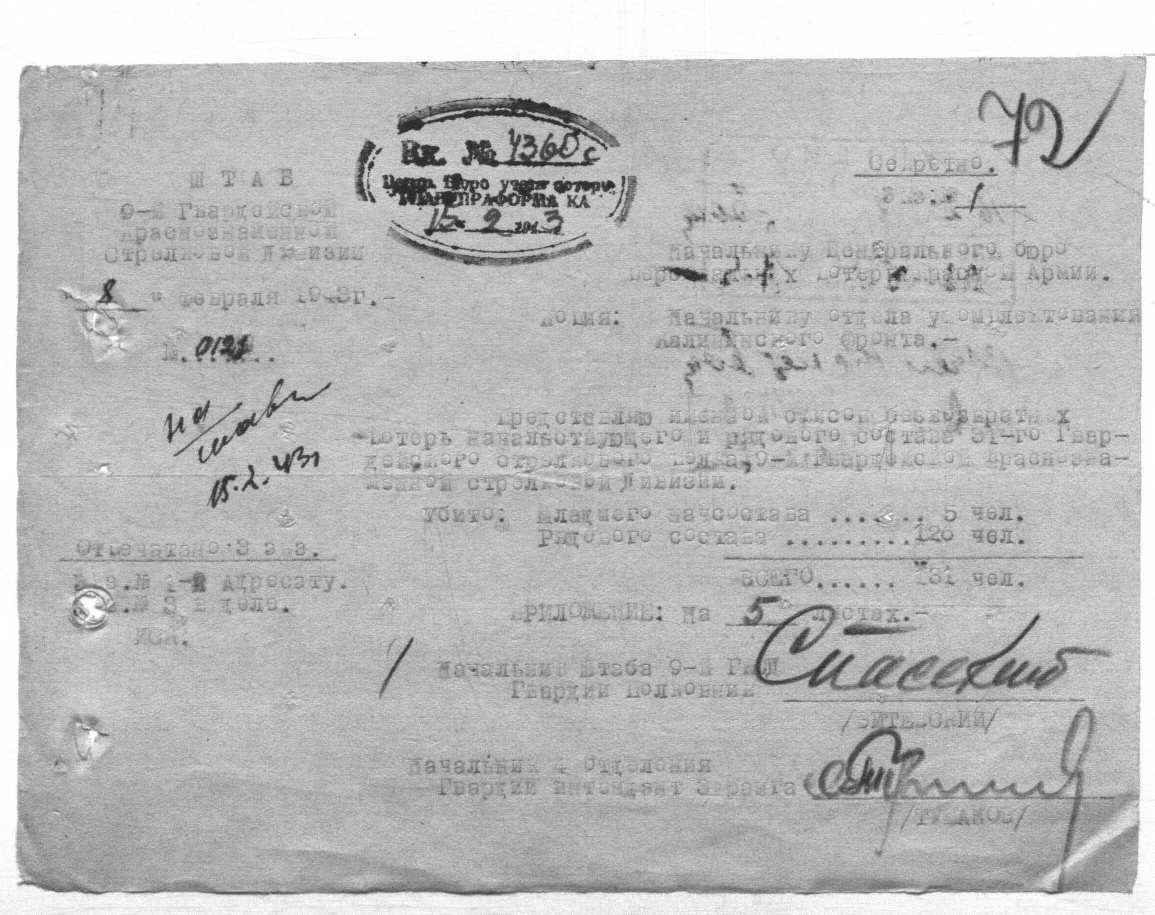 72
Вх. № 4360с
Бюро учета потерь
КА
15 2 1943
Секретно.
экз. 1
ШТАБ
9-й Гвардейской
Краснознаменной
Стрелковой Дивизии
"8" февраля 1943г.-
№.012
Начальнику Центрального бюро
потерь Красной Армии.
Копия: Начальнику отдела укомплектования
Калининского фронта.-
на
15.2.43г
Представляю именной список безвозвратных
потерь начальствующего и рядового состава 31-го Гвар-
дейского стрелкового полка, 9-й Гвардейской Краснозна-
менной стрелковой Дивизии.
Убито: Младшего начсостава ........ 5 чел.
Рядового состава .........126 чел.
ВСЕГО...... 131 чел.
ПРИЛОЖЕНИЕ: На 5 листах.-
Отпечатано 3 экз.
Экз.№ 1-2 Адресату.
Экз.№ 3 в дело.
Исп.
Начальник Штаба 9-й ГКСД
Гвардии Полковник Спасский
/ВИТЕВСКИЙ/
Начальник 4 отделения
Гвардии интендант 3 ранга
/ТУМАКОВ/